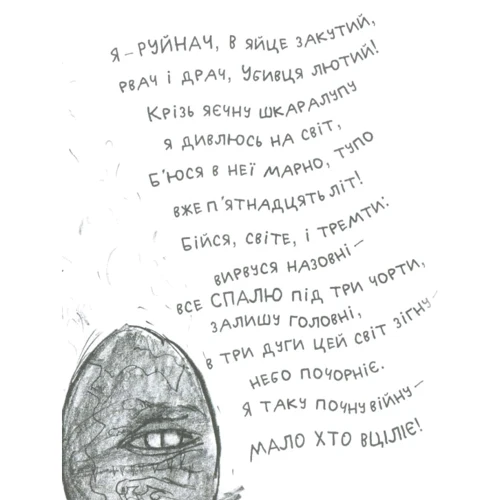 Я – РУЙНАЧ, В ЯЙЦЕ ЗАКУТИЙ,
РВАЧ І ДРАЧ, УБИВЦЯ ЛЮТИЙ!
КРІЗЬ ЯЄЧНУ ШКАРАЛУПУ
Я ДИВЛЮСЬ НА СВІТ,
Б'ЮСЯ В НЕЇ МАРНО, ТУПО
ВЖЕ П'ЯТНАДЦЯТЬ ЛІТ!
БІЙСЯ, СВІТЕ, І ТРЕМТИ:
ВИРВУСЯ НАЗОВНІ –
ВСЕ СПАЛЮ ПІД ТРИ ЧОРТИ,
ЗАЛИШУ ГОЛОВНІ,
В ТРИ ДУГИ ЦЕЙ СВІТ ЗІГНУ –
НЕБО ПОЧОРНІЄ.
Я ТАКУ ПОЧНУ ВІЙНУ –
МАЛО ХТО ВЦІЛІЄ!